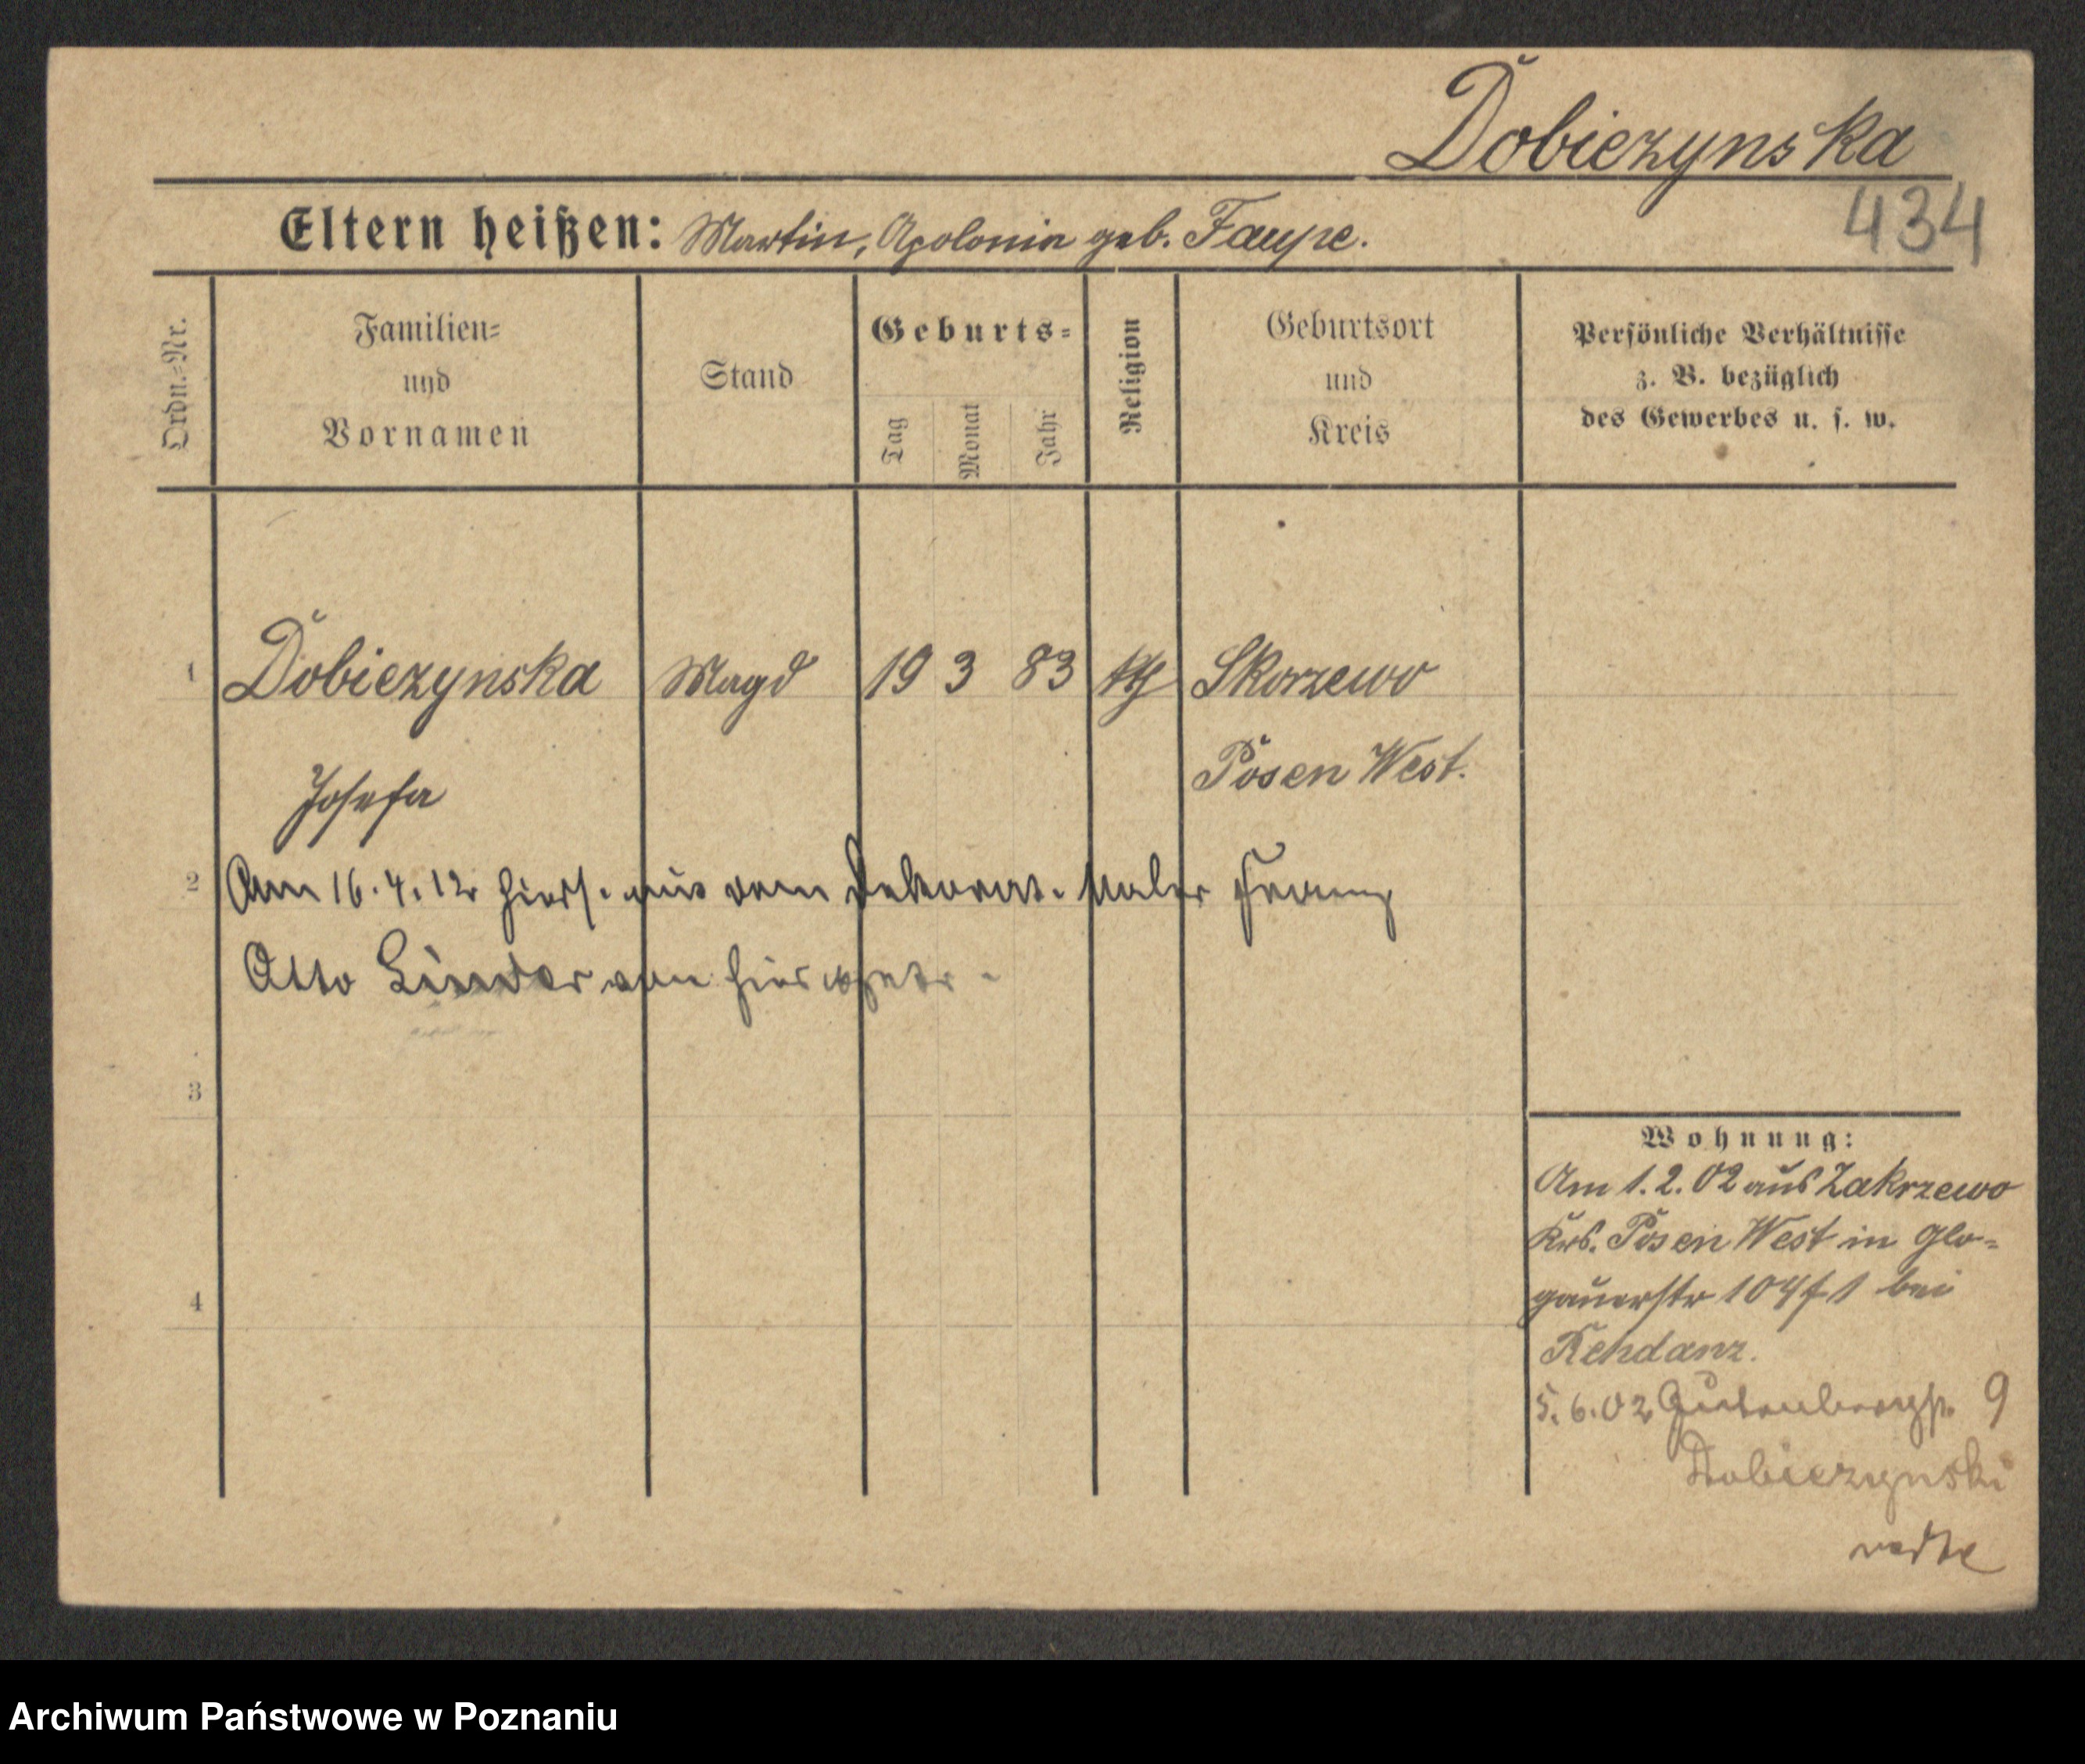 Dobiezynska
434
Eltern heißen: Martin, Apolonia geb. Faupe.
Ordn.-Nr.
Familien-
und
Vornamen
Stand
Geburts-
Tag
Monat
Jahr
Religion
Geburtsort
und
Kreis
Persönliche Verhältnisse
z. B. bezüglich
des Gewerbes u. s. w.
1 Dobiezynska Magd 19 3 83 kth Skorzewo
Posen West.
Josefa
2 Am 16.4.12 hiers. mit dem Dekorat. Maler Franz
Otto Linder von hier
3
4
Wohnung:
Am 1.2.02 aus Zakrzewo
Krs. Posen West in Glo-
gauerstr 104 f 1 bei
Rehdanz.
5.6.02 Gutenbergstr. 9
Dobiezynski
Archiwum Państwowe w Poznaniu